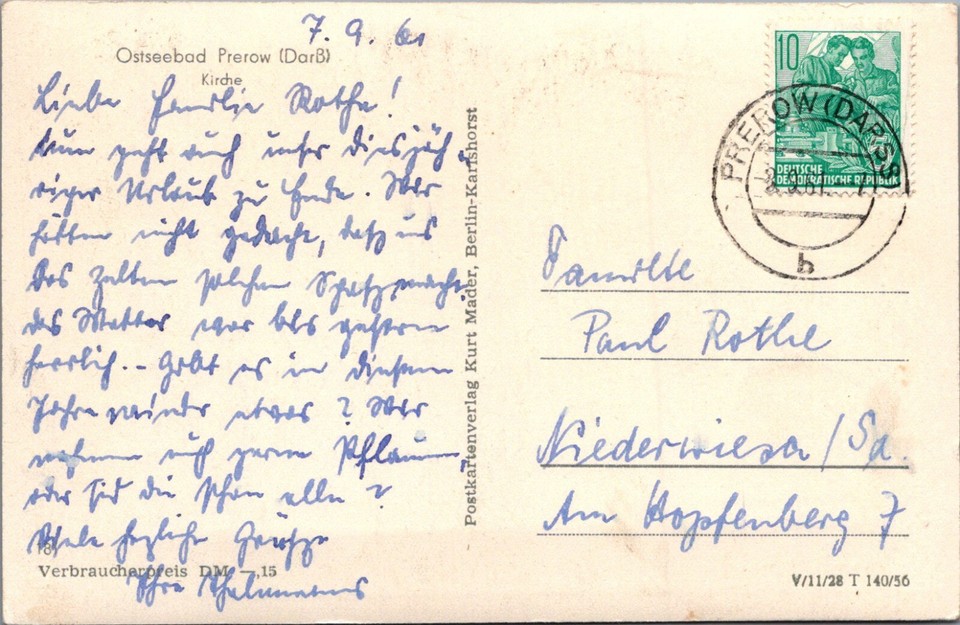 7. 9. 61
Ostseebad Prerow (Darß)
Kirche
Liebe Familie Rothe!
Nun geht auch unser diesjäh-
riger Urlaub zu Ende. Wir
hätten nicht gedacht, daß uns
das Zelten solchen Spaß macht.
das Wetter war bis gestern
herrlich. - Gibt es in diesem
Jahre wieder etwas? Wir
nehmen auch gerne Pflaumen,
oder sind die schon alle?
Viele herzliche Grüße
Ihre
18
Verbraucherpreis DM —,15
Postkartenverlag Kurt Mader, Berlin-Karlshorst
10
DEUTSCHE
DEMOKRATISCHE REPUBLIK
PREROW (DARSS)
61
b
Familie
Paul Rothe
Niederwiesa / Sa.
Am Hopfenberg 7
V/11/28 T 140/56